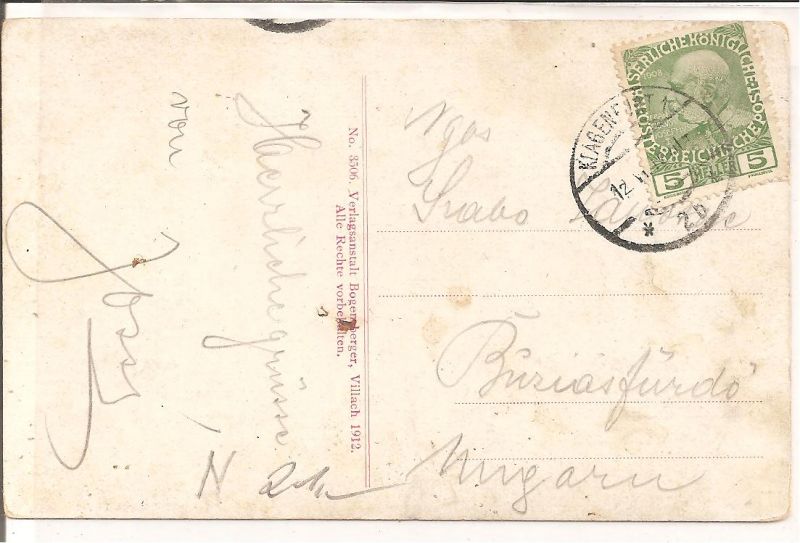 Herrlichegrüsse
von
No. 3506 Verlagsanstalt Bogensberger, Villach 1912.
Alle Rechte vorbehalten.
KAISERLICHE KÖNIGLICHE
ÖSTERREICHISCHE POST
1908
5 HELLER 5
KLAGENFURT 1
12 VI
* 2b
Ngos
Szabo
Buziásfürdö
Ungarn